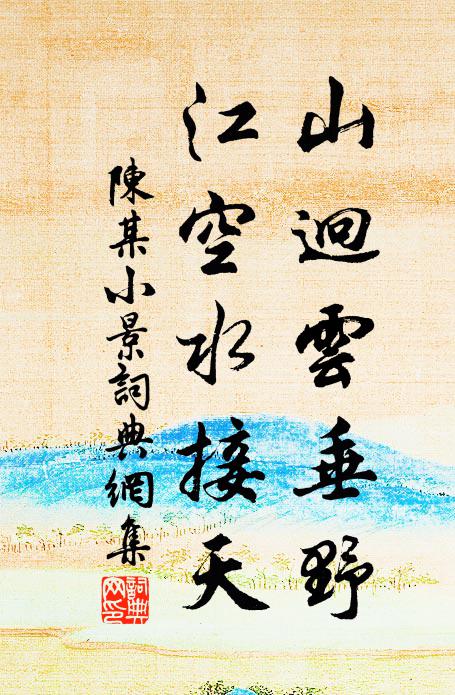 山迴雲垂野
江空水接天
陳某小景詞典網集
詞典網印